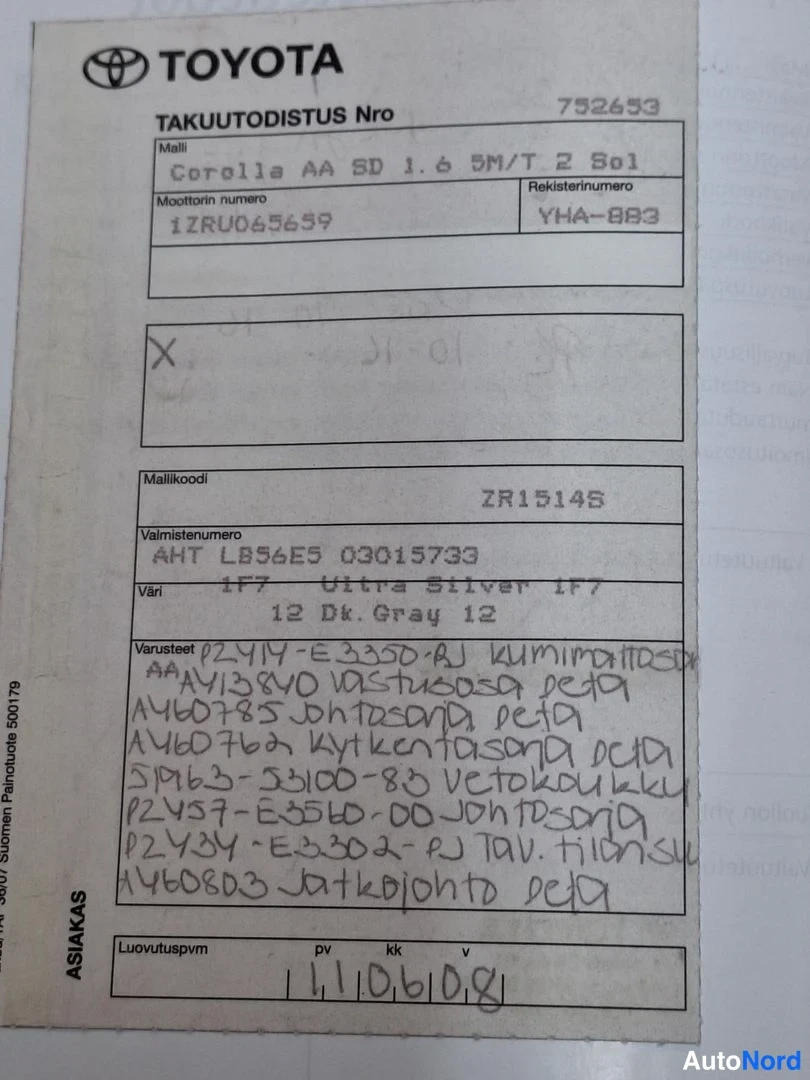 TOYOTA
TAKUUTODISTUS Nro 752653
Malli
Corolla AA SD 1.6 5M/T 2 Sol
Moottorin numero
Rekisterinumero
1ZRU065659
YHA-883
X
Mallikoodi
ZR1514S
Valmistenumero
AHT LB56E5 03015733
1F7 Ultra Silver 1F7
Väri
12 Dk.Gray 12
Varusteet PZ414-E3350-PJ Kumimattosar
AA AY13840 Vastusosa Defa
AY60785 Johtosarja Defa
AY60762 Kytkentäsarja Defa
51963-53100-83 Vetokoukku
PZ457-E3560-00 Johtosarja
PZ434-E3302-PJ Tav. tilansu
AY60803 Jatkojohto Defa
Luovutuspvm pv kk v
110608
ASIAKAS
36/07 Suomen Painotuote 500179
AutoNord